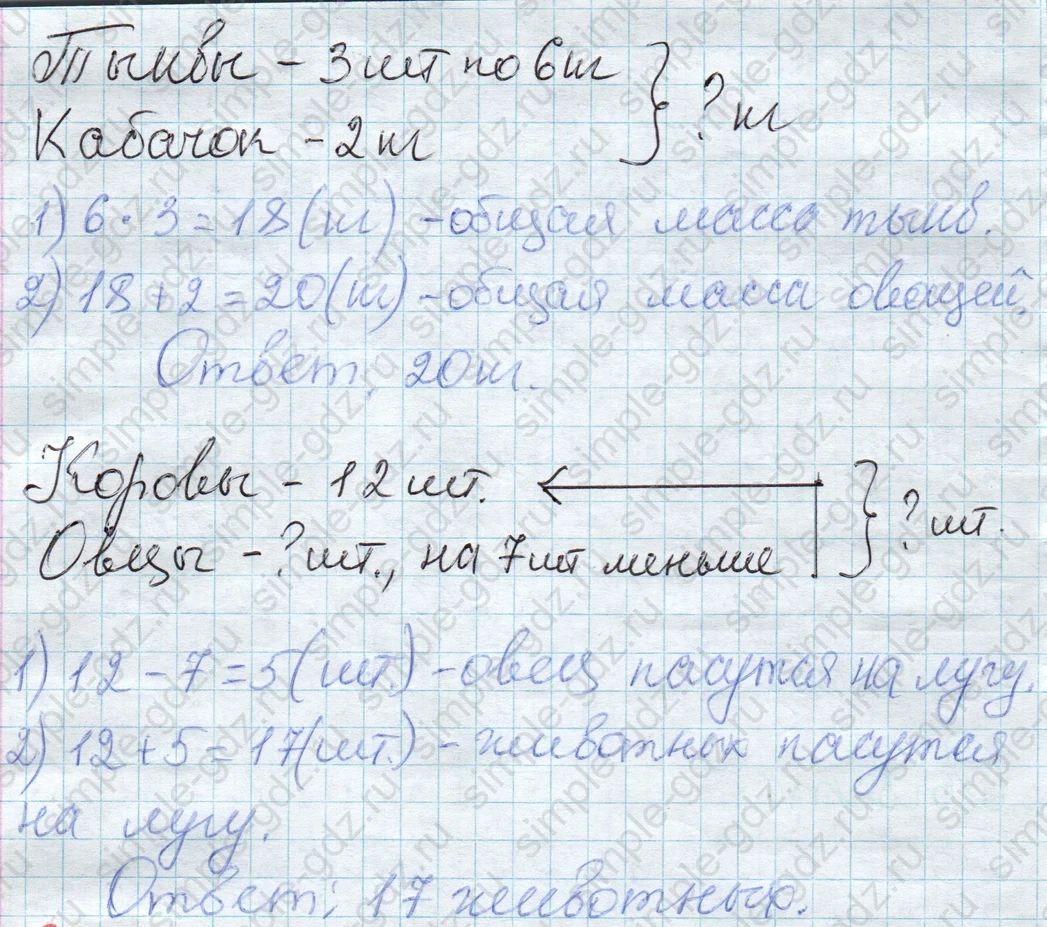 Тыквы - 3 шт по 6 кг
Кабачок - 2 кг
} ? кг
1) 6 · 3 = 18 (кг) - общая масса тыкв.
2) 18 + 2 = 20 (кг) - общая масса овощей.
Ответ: 20 кг.
Коровы - 12 шт.
Овцы - ? шт., на 7 шт меньше
} ? шт.
1) 12 - 7 = 5 (шт.) - овец пасутся на лугу.
2) 12 + 5 = 17 (шт.) - животных пасутся
на лугу.
Ответ: 17 животных.
simple-gdz.ru